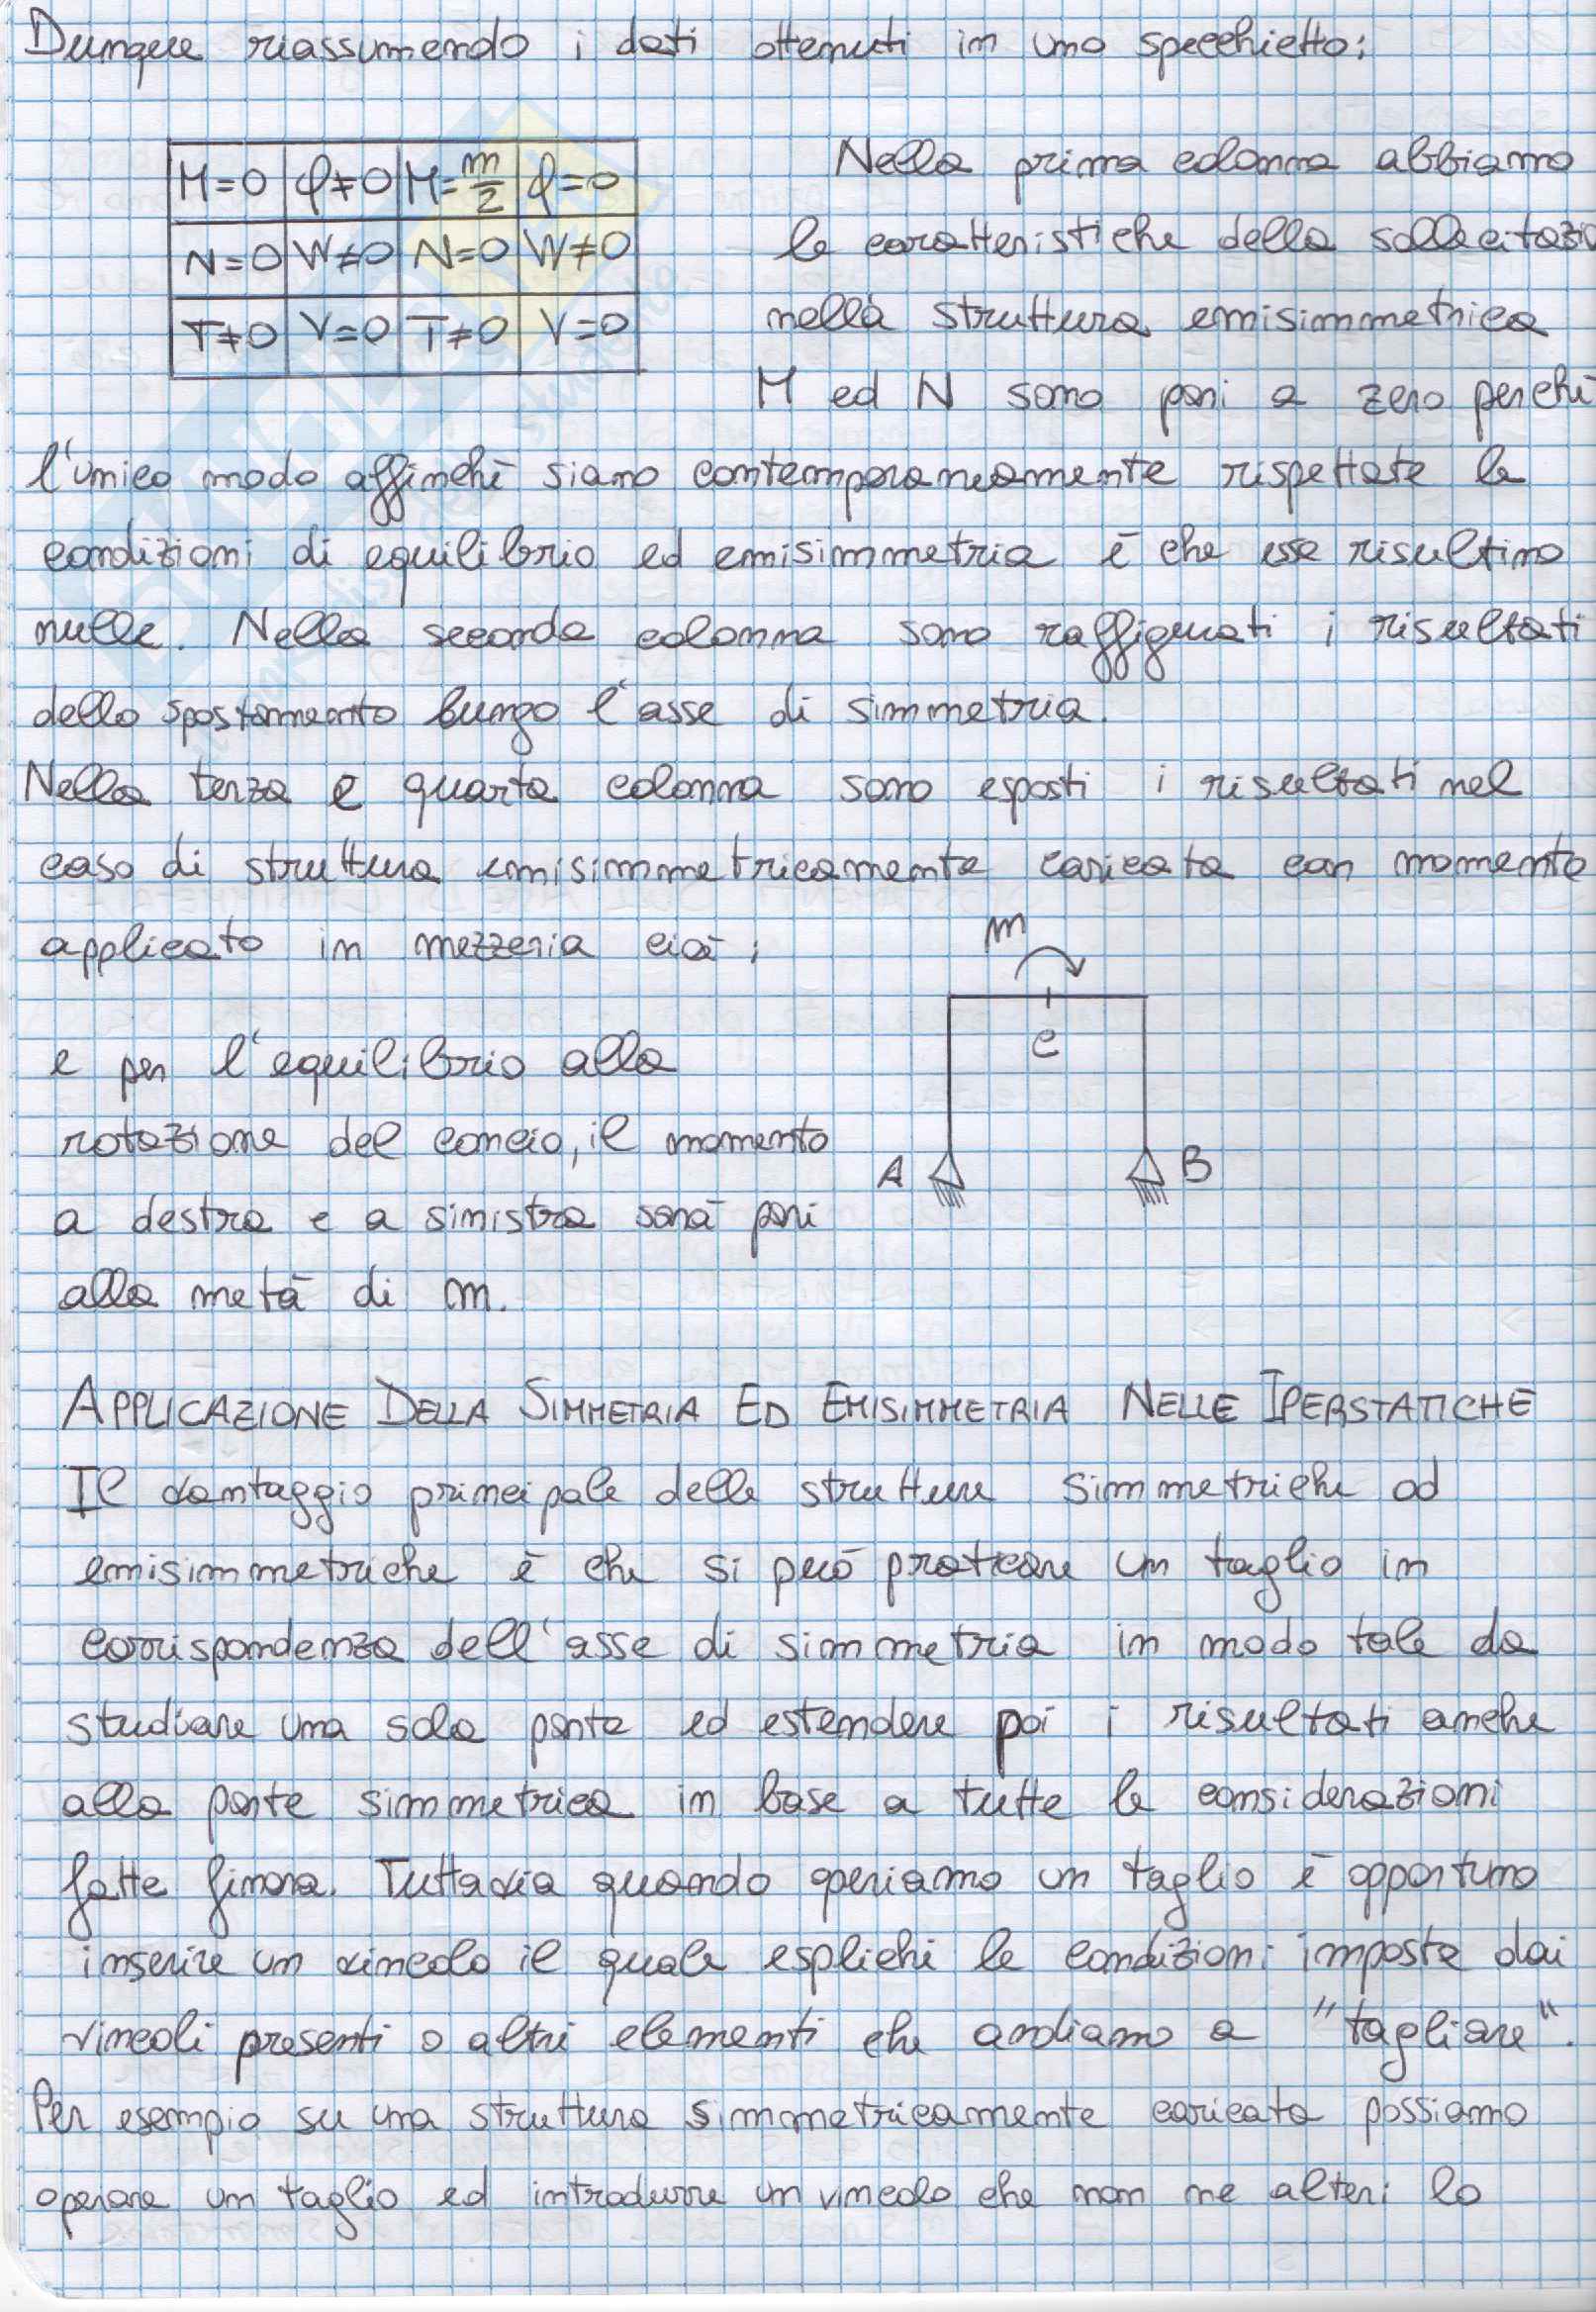 Dunque riassumendo i dati ottenuti in uno specchietto:
M=0 φ≠0 M=m/2 φ=0
N=0 W≠0 N=0 W≠0
T≠0 V=0 T≠0 V=0
Nella prima colonna abbiamo
le caratteristiche della sollecitazio
nella struttura emisimmetrica
M ed N sono pari a zero perchè
l'unico modo affinchè siano contemporaneamente rispettate le
condizioni di equilibrio ed emisimmetria è che esse risultino
nulle. Nella seconda colonna sono raffigurati i risultati
dello spostamento lungo l'asse di simmetria.
Nella terza e quarta colonna sono esposti i risultati nel
caso di struttura emisimmetricamente caricata con momento
applicato in mezzeria cioè:
m
c
A
B
e per l'equilibrio alla
rotazione del concio, il momento
a destra e a sinistra sarà pari
alla metà di m.
APPLICAZIONE DELLA SIMMETRIA ED EMISIMMETRIA NELLE IPERSTATICHE
Il vantaggio principale delle strutture simmetriche od
emisimmetriche è che si può praticare un taglio in
corrispondenza dell'asse di simmetria in modo tale da
studiare una sola parte ed estendere poi i risultati anche
alla parte simmetrica in base a tutte le considerazioni
fatte finora. Tuttavia quando operiamo un taglio è opportuno
inserire un vincolo il quale esplichi le condizioni imposte dai
vincoli presenti o altri elementi che andiamo a "tagliare".
Per esempio su una struttura simmetricamente caricata possiamo
operare un taglio ed introdurre un vincolo che non ne alteri lo